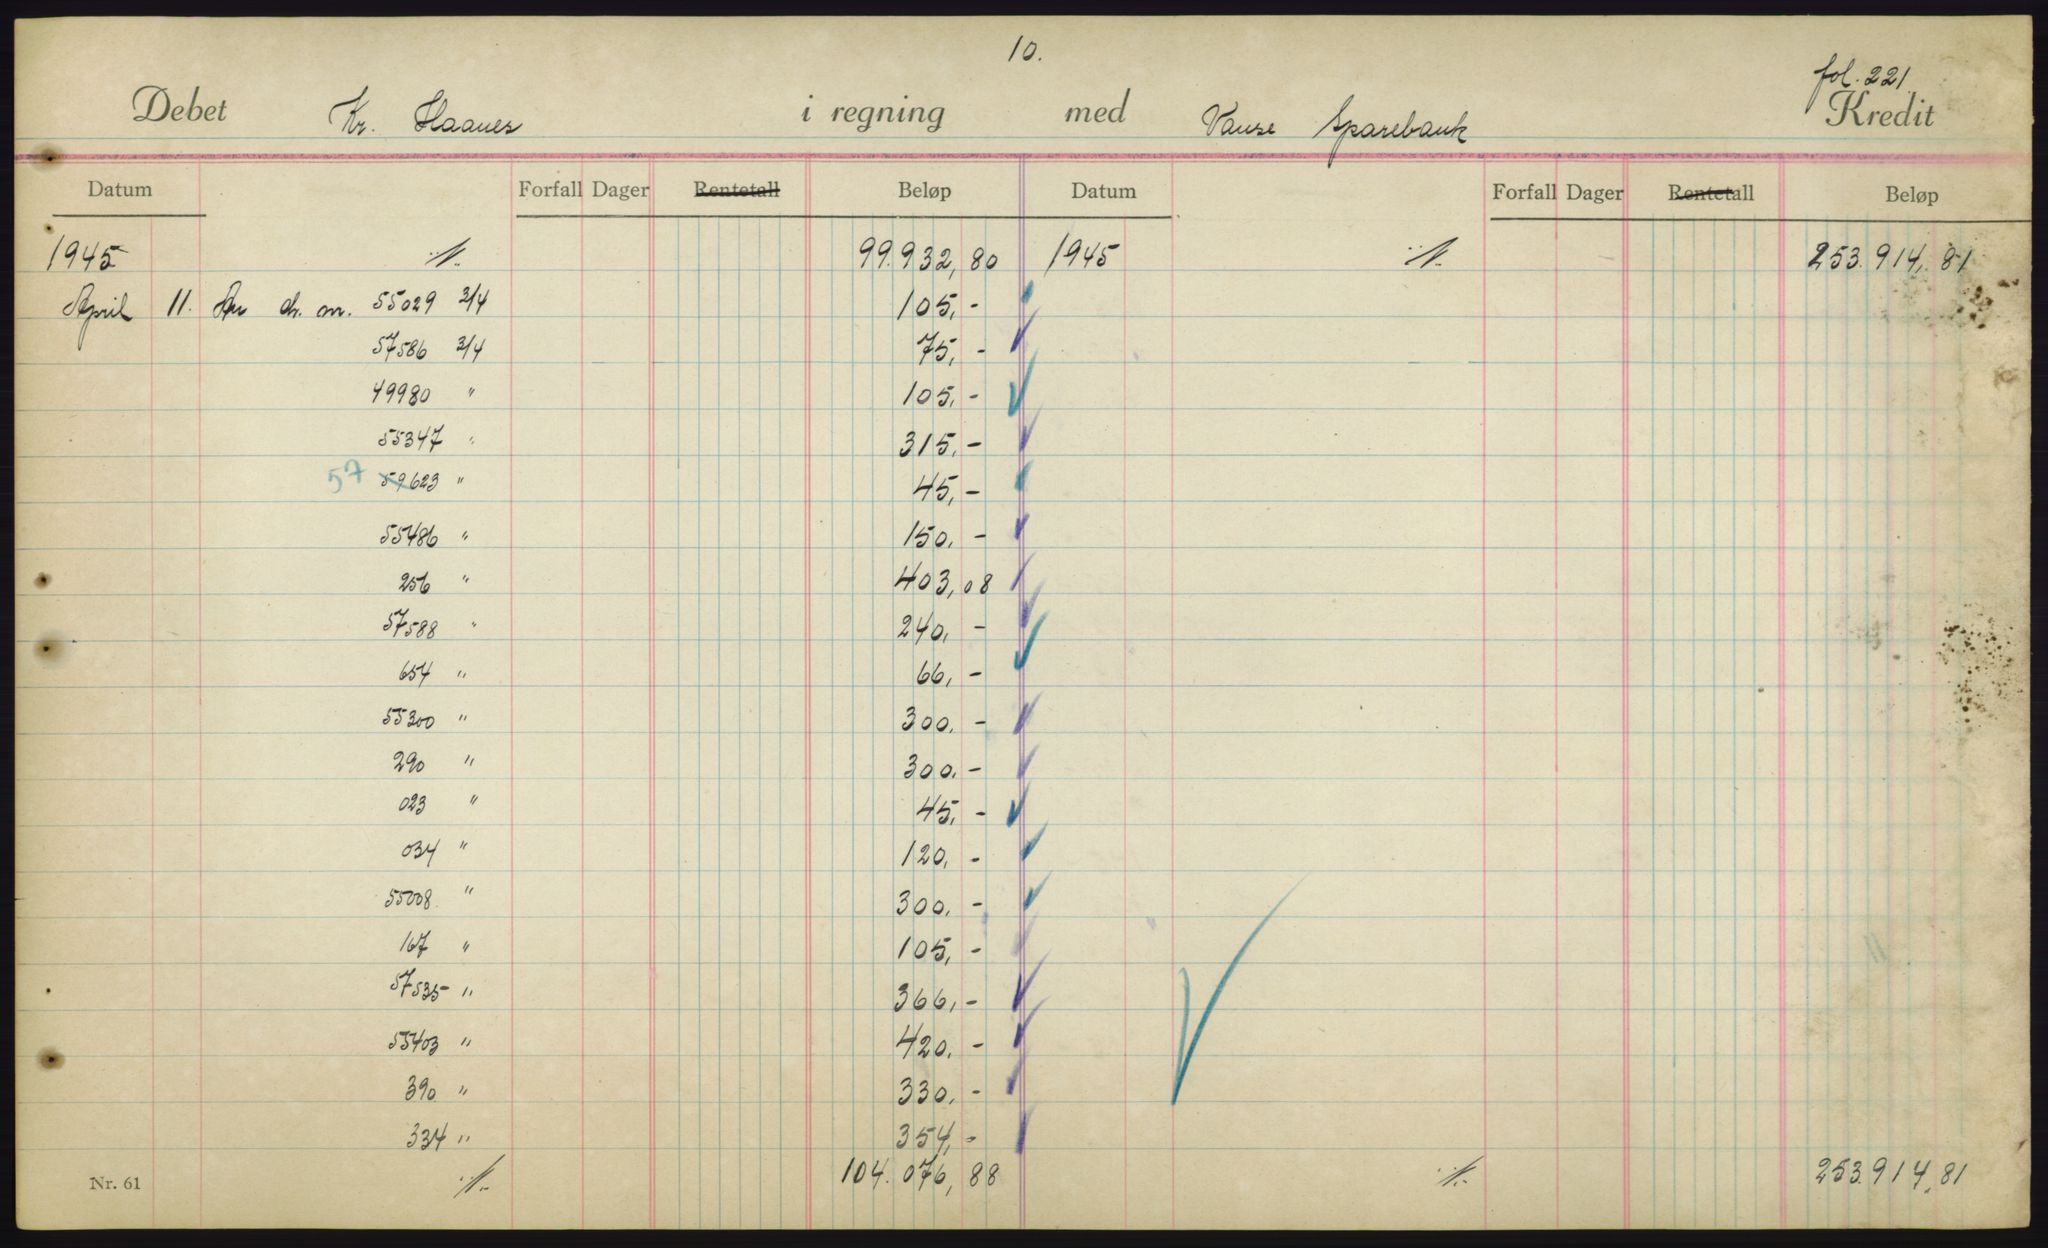 10.
fol. 221.
Debet Kr. Haanes i regning med Vanse Sparebank Kredit
Datum Forfall Dager Rentetall Beløp Datum Forfall Dager Rentetall Beløp
1945 ·/· 99.932,80 1945 ·/· 253.914,81
April 11. An ch. nr. 55029 3/4 105,-
57586 3/4 75,-
49980 " 105,-
55347 " 315,-
57 59623 " 45,-
55486 " 150,-
256 " 403,08
57588 " 240,-
654 " 66,-
55300 " 300,-
290 " 300,-
023 " 45,-
034 " 120,-
55008 " 300,-
167 " 105,-
57535 " 366,-
55403 " 420,-
390 " 330,-
334 " 354,-
Nr. 61 ·/· 104.076,88 ·/· 253.914,81